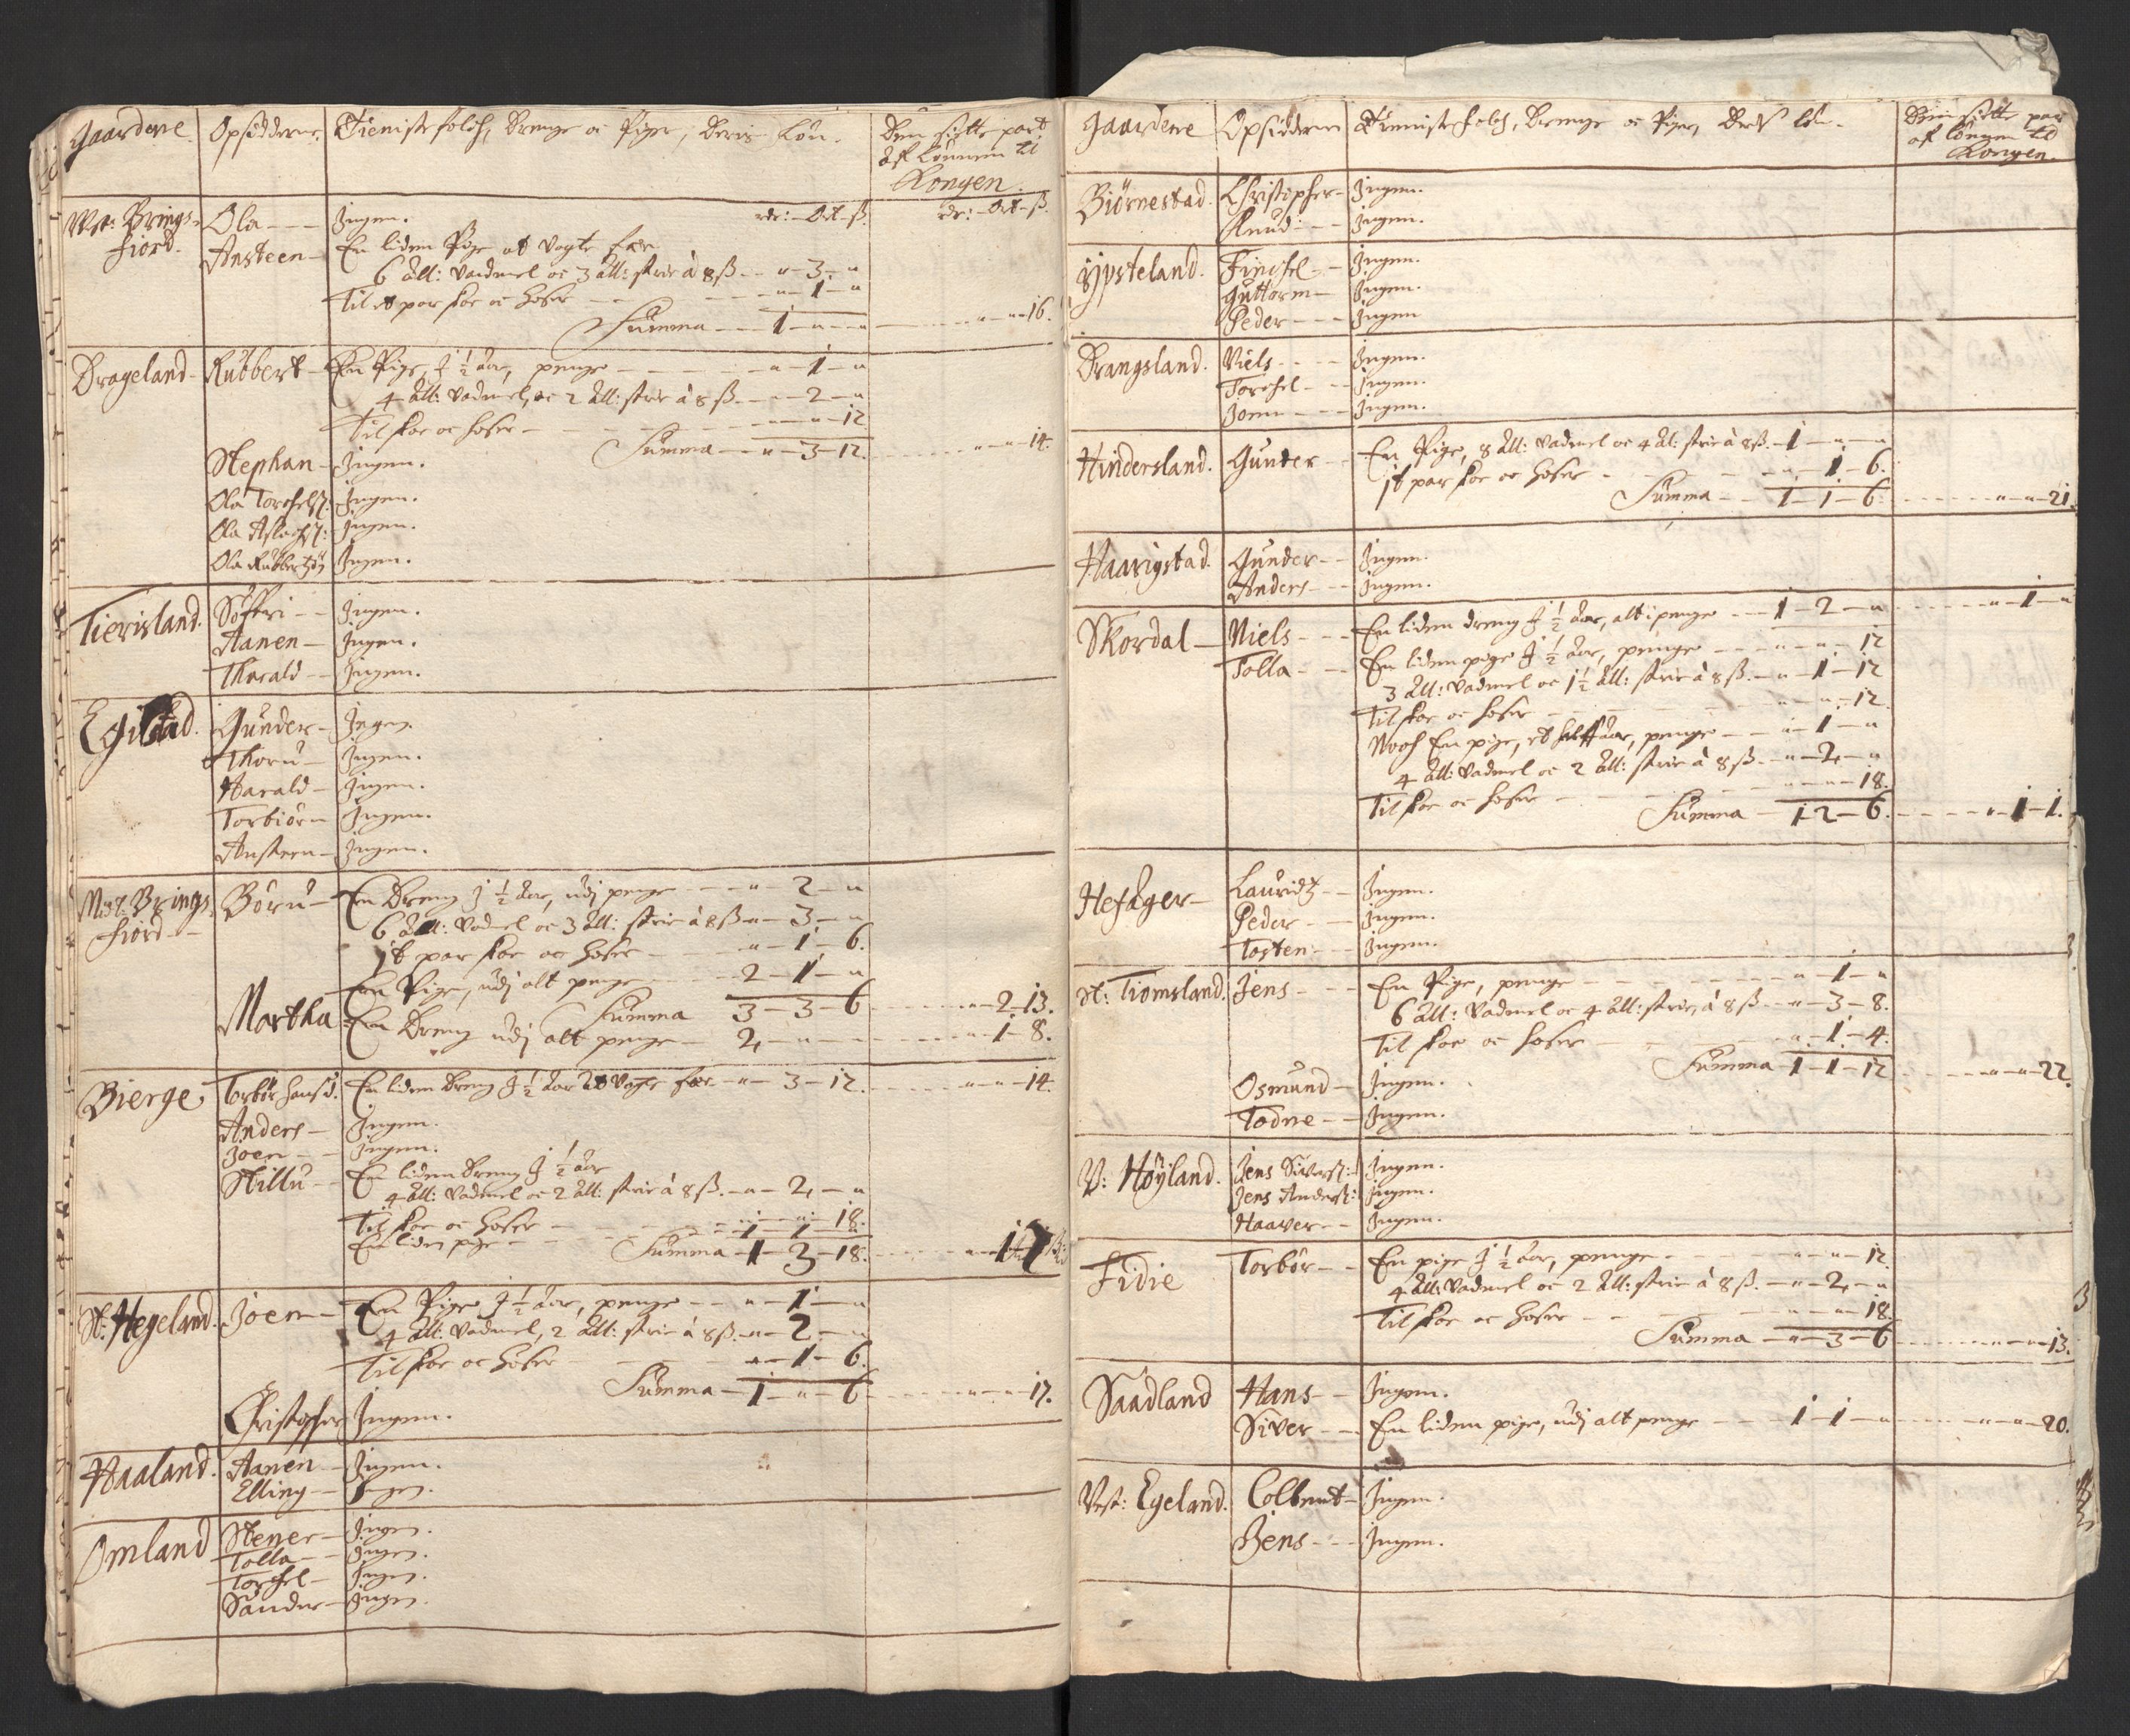 Gaardene Opsidderne Tieniste folch, Drenge oc Piger, Deris Løn. Den siette part
af Lønnen til
Kongen.
rdr:-Ort-ß. rdr:-Ort-ß.
Vest: Brings- Ola--- Ingen.
fiord. Ansteen- En liden Pige at vogte fæe
6 All: Vadmel oc 3 All: strie à 8 ß -- " - 3 - "
Til et par skoe oc hoser -- " - 1 - "
Summa --- 1 - " - " " - " - 16.
Drageland- Rubbert- En Pige, J ½ Aar, penge --- " - 1 - "
4 All: Vadmel, oc 2 All: strie à 8 ß. - " - 2 - "
Til skoe oc hoser --- " - " - 12
Summa -- " - 3 - 12. " - " - 14.
Stephan- Ingen.
Ola Torchels: Ingen.
Ola Aslachs: Ingen.
Ola Rubbertzøn Ingen.
Tierisland. Søffri-- Ingen.
Aanen- Ingen.
Tharald- Ingen.
Egilstad. Gunder- Ingen.
Thoru- Ingen.
Harald- Ingen.
Torbiørn Ingen.
Ansteen- Ingen.
Midt: Brings Børu- En Dreng J ½ Aar, udj penge --- " - 2 - "
fiord-- 6 All: Vadmel oc 3 All: strie à 8 ß - " - 3 - "
1t par skoe oc hoser - " - 1 - 6.
En Pige, udj alt penge -- 2 - 1 - "
Summa 3 - 3 - 6 " - 2. 13.
Martha En Dreng udj alt penge - 2 - " - " " - 1 - 8.
Bierge Torbør En liden Dreng J ½ Aar at vogte fæe - " - 3 - 12. " - " - 14.
Anders- Ingen.
Joen- Ingen.
Stillu- En liden Dreng J ½ Aar
4 All: Vadmel oc 2 All: strie à 8 ß. - " - 2 - "
Til skoe oc hoser --- " - " - 18.
En liden pige --- 1 - 1 - "
Summa - 1 - 3 - 18.
St: Hegeland. Joen- En Pige J ½ Aar, penge -- " - 1 - "
4 All: Vadmel, 2 All: strie à 8 ß. - " - 2 - "
Til skoe oc hoser --- " - 1 - 6.
Summa - 1 - " - 6 " - " - 17.
Christopher Ingen.
Haaland. Aanen- Ingen.
Elling- Ingen.
Omland Stener- Ingen.
Tolla- Ingen.
Torchel- Ingen.
Sander- Ingen.
Gaardene Opsidderne Tieniste folch, Drenge oc Piger, Deris løn. Den siette par
af Lønnen til
Kongen.
Biørnestad. Christopher- Ingen.
Knud-- Ingen.
Ypsteland. Finchel- Ingen.
Guttorm- Ingen.
Peder-- Ingen
Drangsland. Niels-- Ingen.
Torchel- Ingen.
Joen-- Ingen.
Hindersland. Gunder- En Pige, 8 All: Vadmel oc 4 Al: strie à 8 ß. - 1 - " - "
1t par skoe oc hoser --- " - 1 - 6.
Summa -- 1 - 1 - 6. " - " - 21.
Haarigstad. Gunder-- Ingen.
Anders-- Ingen.
Skordal- Niels-- En liden dreng J ½ Aar, alt i penge -- 1 - 2 - " " - 1 - "
Tolla-- En liden pige J ½ Aar, penge --- " - " - 12
3 All: Vadmel oc 1½ All: strie à 8 ß. - " - 1 - 12
Til skoe oc hoser --- " - " - 12.
Noch En pige, et halff Aar, penge -- " - 1 - "
4 All: Vadmel oc 2 All: strie à 8 ß. - " - 2 - "
Til skoe oc hoser --- " - " - 18.
Summa - 1 - 2 - 6. " - 1 - 1.
Hefager- Lauridtz- Ingen.
Peder- Ingen.
Tosten- Ingen.
St: Tiomsland. Jens-- En Pige, penge --- " - 1 - "
6 All: Vadmel oc 4 All: strie, à 8 ß - " - 3 - 8.
Til skoe oc hoser --- " - 1 - 4.
Summa - 1 - 1 - 12 " - " - 22.
Osmund- Ingen.
Todne- Ingen.
V: Høyland. Jens Sivers: Ingen.
Jens Anders: Ingen.
Haaver-- Ingen.
Fidie Torbør-- En pige J ½ Aar, penge --- " - " - 12
4 All: Vadmel oc 2 All: strie à 8 ß. - " - 2 - "
Til skoe oc hoser --- " - " - 18
Summa -- " - 3 - 6 " - " - 13.
Saadland Hans-- Ingen.
Siver-- En liden pige, udj alt penge -- 1 - 1 - " " - " - 20.
Vest: Egeland. Colbent- Ingen.
Jens-- Ingen.